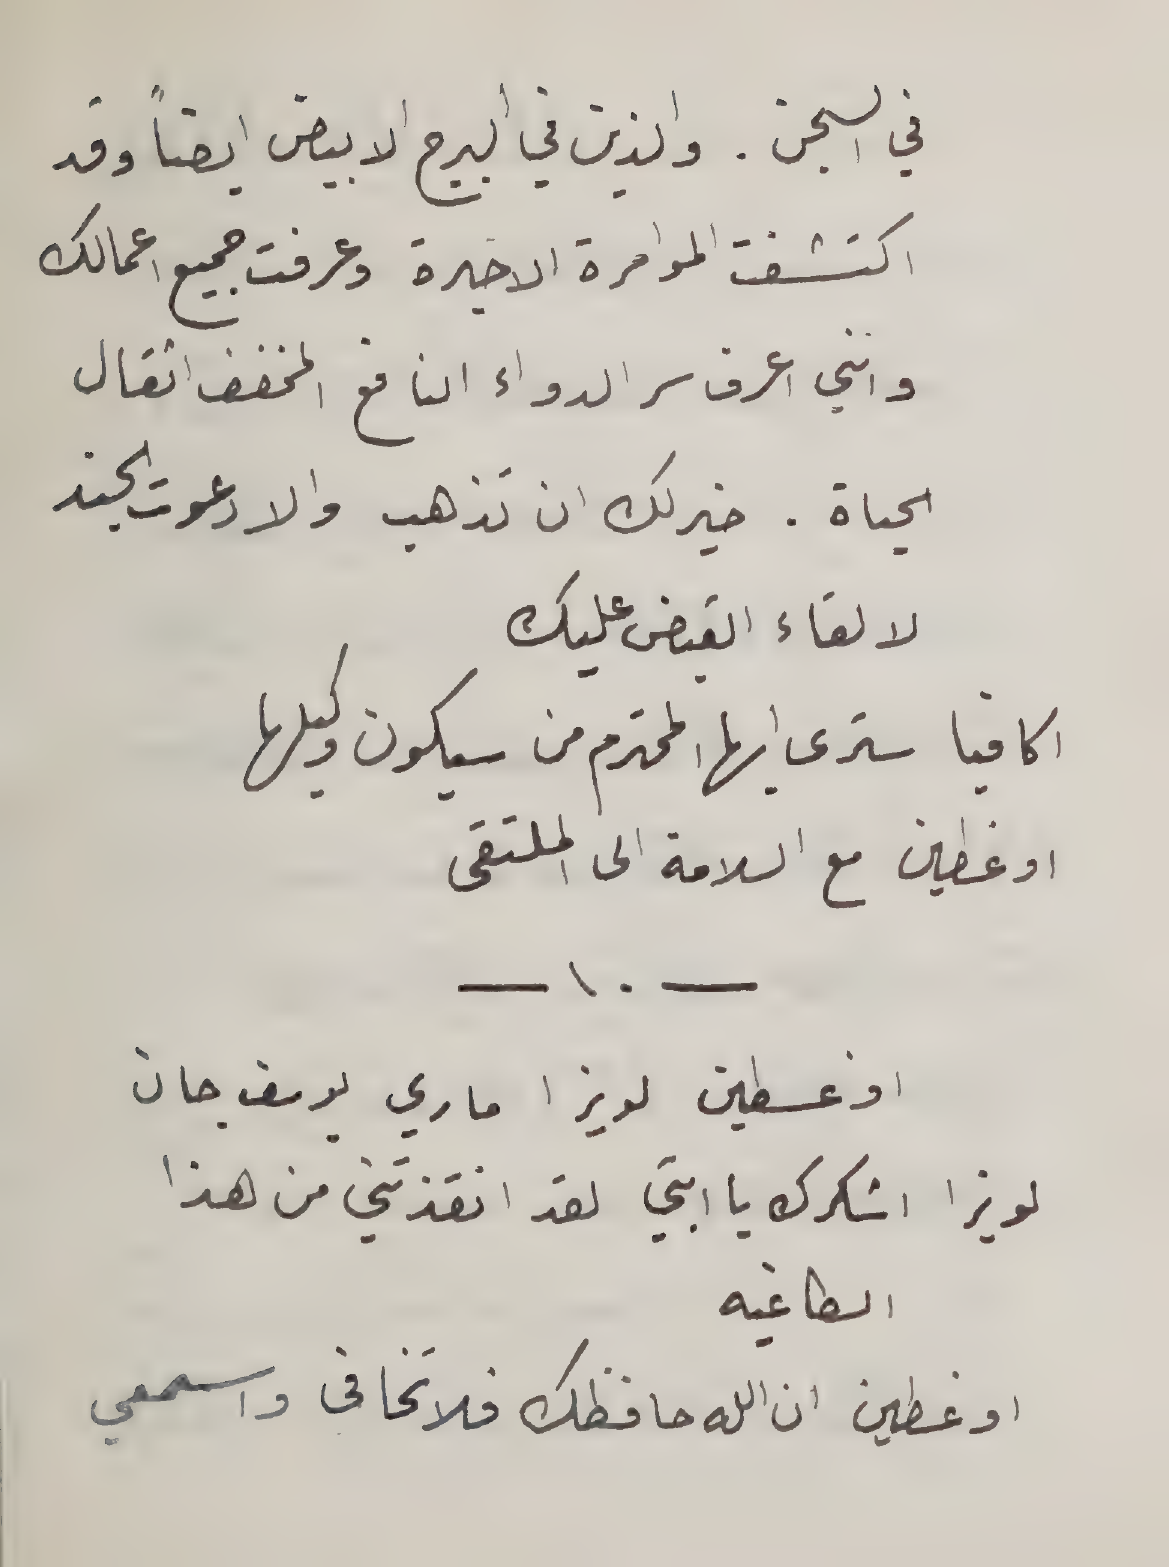 في السجن . والذين في البرج الابيض ايضاً وقد
اكتشفت الموامرة الاخيرة وعرفت جميع اعمالك
وانني اعرف سر الدواء النافع المخفف اثقال
الحياة . خير لك ان تذهب والا دعوت الجند
لالقاء القبض عليك
اكافيا سترى ايها المحترم من سيكون وكيلها
اوغطين مع السلامة الى الملتقى
— ١٠ —
اوغسطين لويزا ماري يوسف جان
لويزا اشكرك يا ابتي لقد انقذتني من هذا
الطاغيه
اوغطين ان الله حافظك فلا تخافى واسمعي